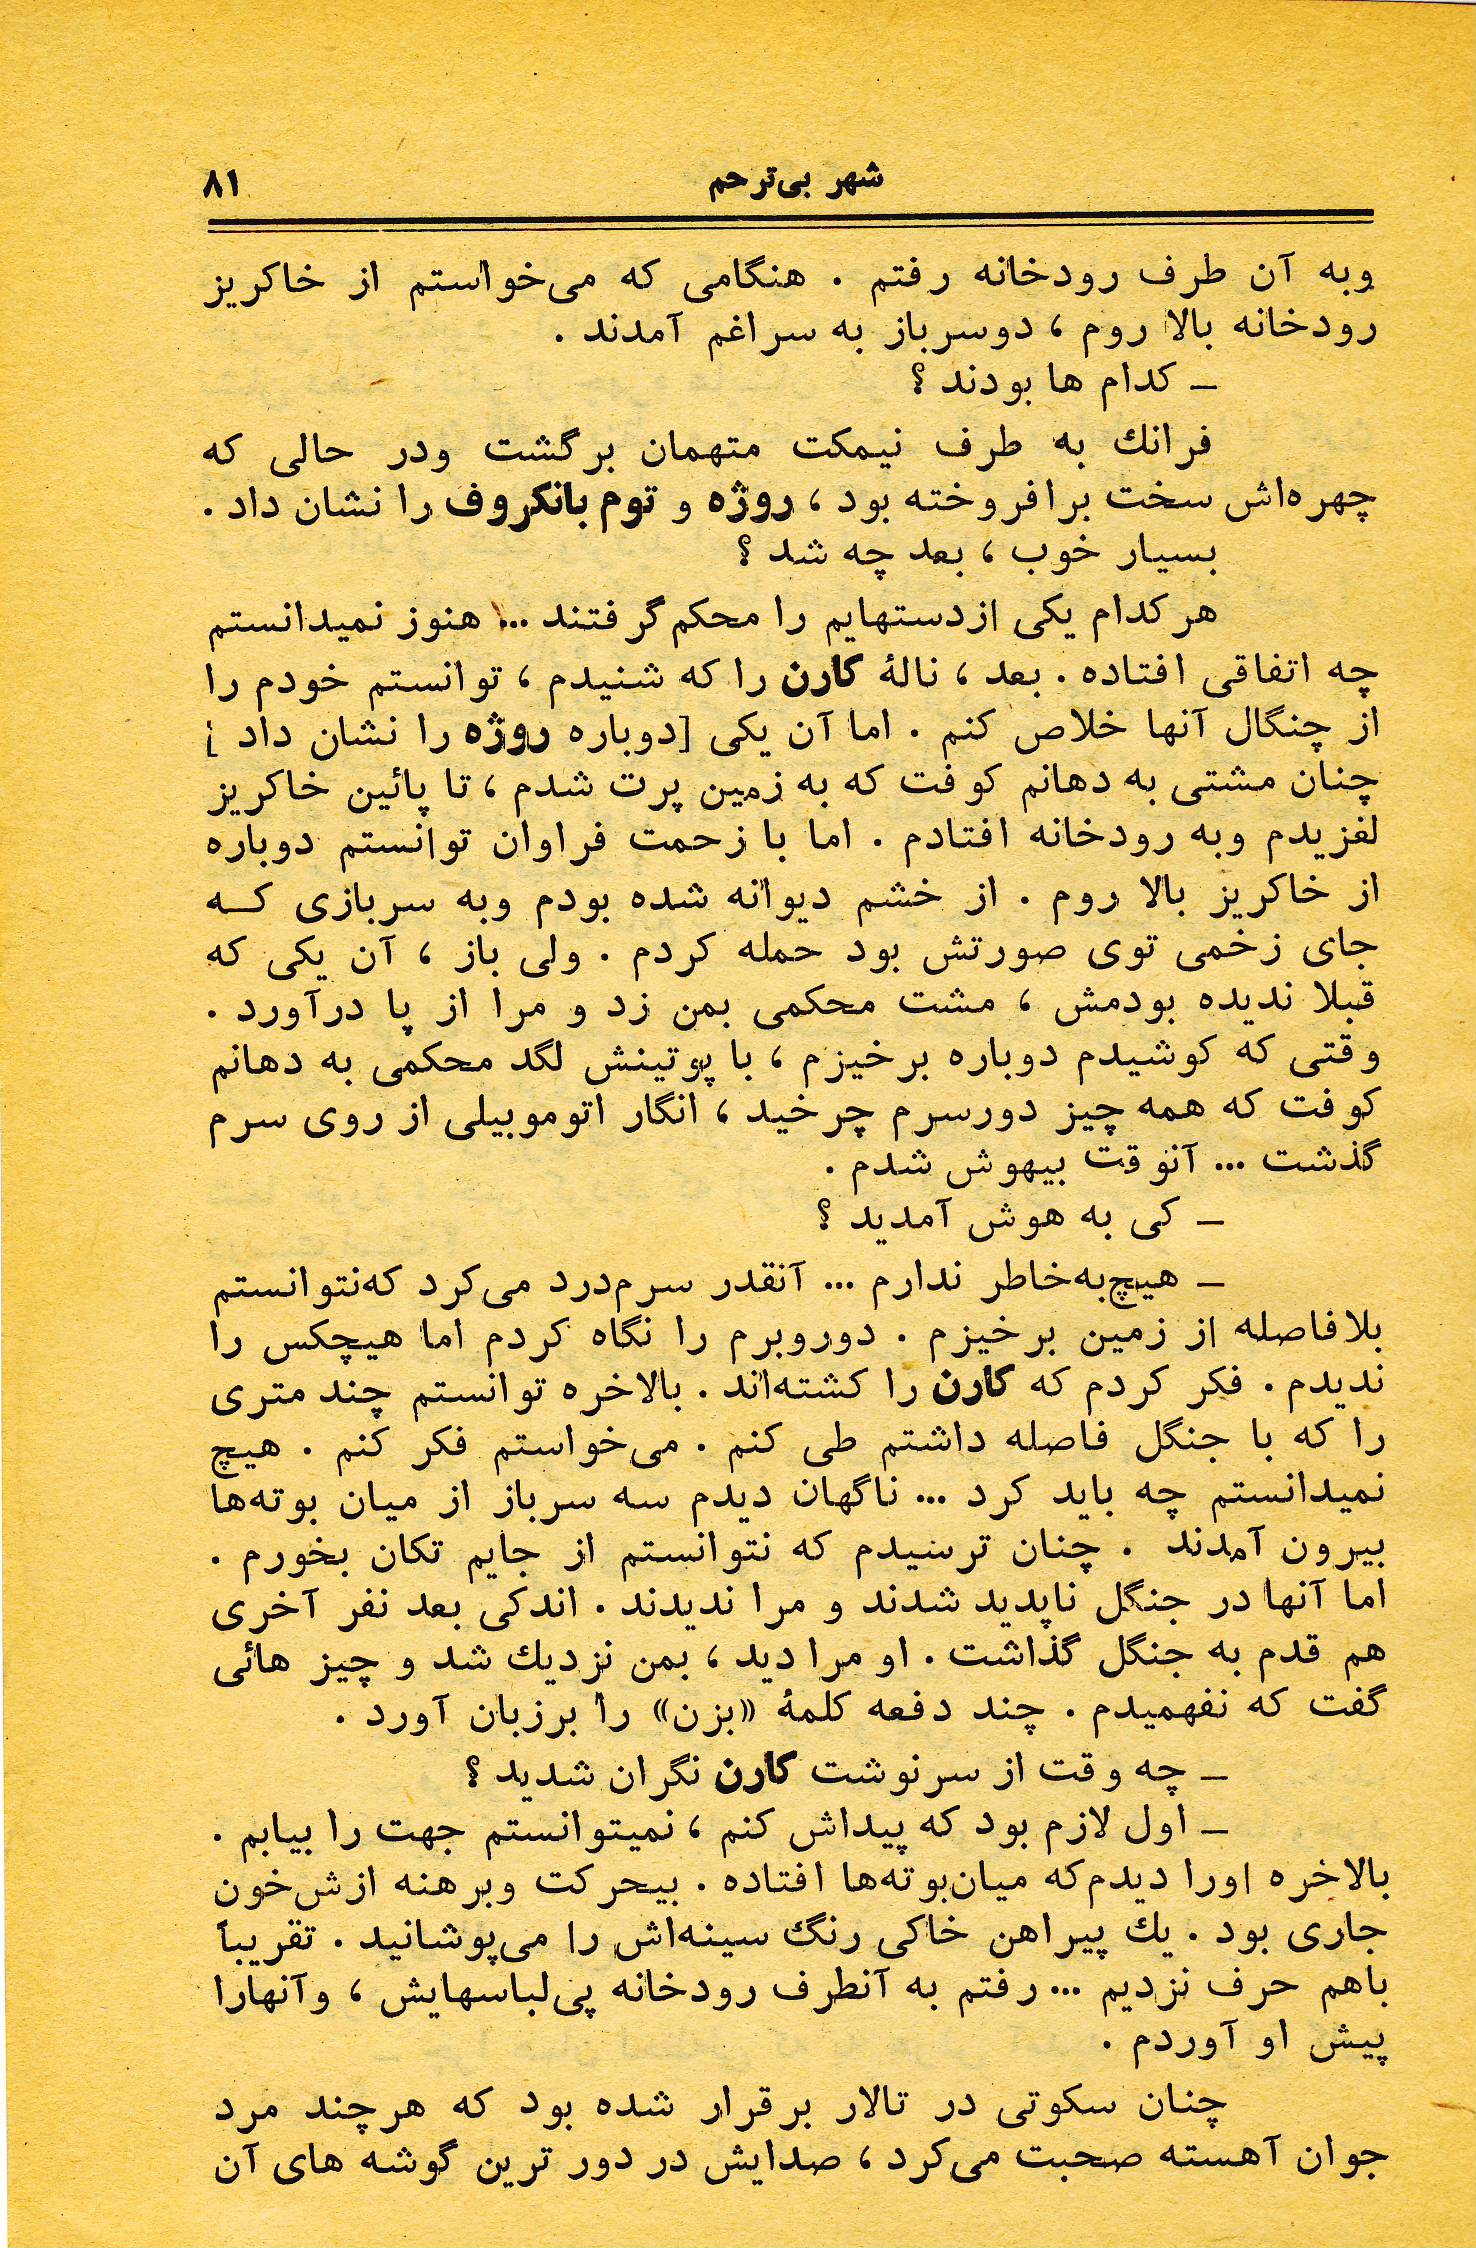 شهر بی‌ترحم
۸۱
وبه آن طرف رودخانه رفتم . هنگامی که می‌خواستم از خاکریز
رودخانه بالا روم ، دوسرباز به سراغم آمدند .
ــ کدام ها بودند ؟
فرانك به طرف نیمکت متهمان برگشت ودر حالی که
چهره‌اش سخت برافروخته بود ، روژه و توم بانکروف را نشان داد .
بسیار خوب ، بعد چه شد ؟
هرکدام یکی ازدستهایم را محکم گرفتند ... هنوز نمیدانستم
چه اتفاقی افتاده . بعد ، نالهٔ کارن را که شنیدم ، توانستم خودم را
از چنگال آنها خلاص کنم . اما آن یکی [دوباره روژه را نشان داد ]
چنان مشتی به دهانم کوفت که به زمین پرت شدم ، تا پائین خاکریز
لغزیدم وبه رودخانه افتادم . اما با زحمت فراوان توانستم دوباره
از خاکریز بالا روم . از خشم دیوانه شده بودم وبه سربازی کــه
جای زخمی توی صورتش بود حمله کردم . ولی باز ، آن یکی که
قبلا ندیده بودمش ، مشت محکمی بمن زد و مرا از پا درآورد .
وقتی که کوشیدم دوباره برخیزم ، با پوتینش لگد محکمی به دهانم
کوفت که همه چیز دورسرم چرخید ، انگار اتوموبیلی از روی سرم
گذشت ... آنوقت بیهوش شدم .
ــ کی به هوش آمدید ؟
ــ هیچ‌به‌خاطر ندارم ... آنقدر سرم‌درد می‌کرد که‌نتوانستم
بلافاصله از زمین برخیزم . دوروبرم را نگاه کردم اما هیچکس را
ندیدم . فکر کردم که کارن را کشته‌اند . بالاخره توانستم چند متری
را که با جنگل فاصله داشتم طی کنم . می‌خواستم فکر کنم . هیچ
نمیدانستم چه باید کرد ... ناگهان دیدم سه سرباز از میان بوته‌ها
بیرون آمدند . چنان ترسیدم که نتوانستم از جایم تکان بخورم .
اما آنها در جنگل ناپدید شدند و مرا ندیدند . اندکی بعد نفر آخری
هم قدم به جنگل گذاشت . او مرا دید ، بمن نزدیك شد و چیز هائی
گفت که نفهمیدم . چند دفعه کلمهٔ «بزن» را برزبان آورد .
ــ چه وقت از سرنوشت کارن نگران شدید ؟
ــ اول لازم بود که پیداش کنم ، نمیتوانستم جهت را بیابم .
بالاخره اورا دیدم‌که میان‌بوته‌ها افتاده . بیحرکت وبرهنه ازش‌خون
جاری بود . یك پیراهن خاکی رنگ سینه‌اش را می‌پوشانید . تقریباً
باهم حرف نزدیم ... رفتم به آنطرف رودخانه پی‌لباسهایش ، وآنهارا
پیش او آوردم .
چنان سکوتی در تالار برقرار شده بود که هرچند مرد
جوان آهسته صحبت می‌کرد ، صدایش در دور ترین گوشه های آن